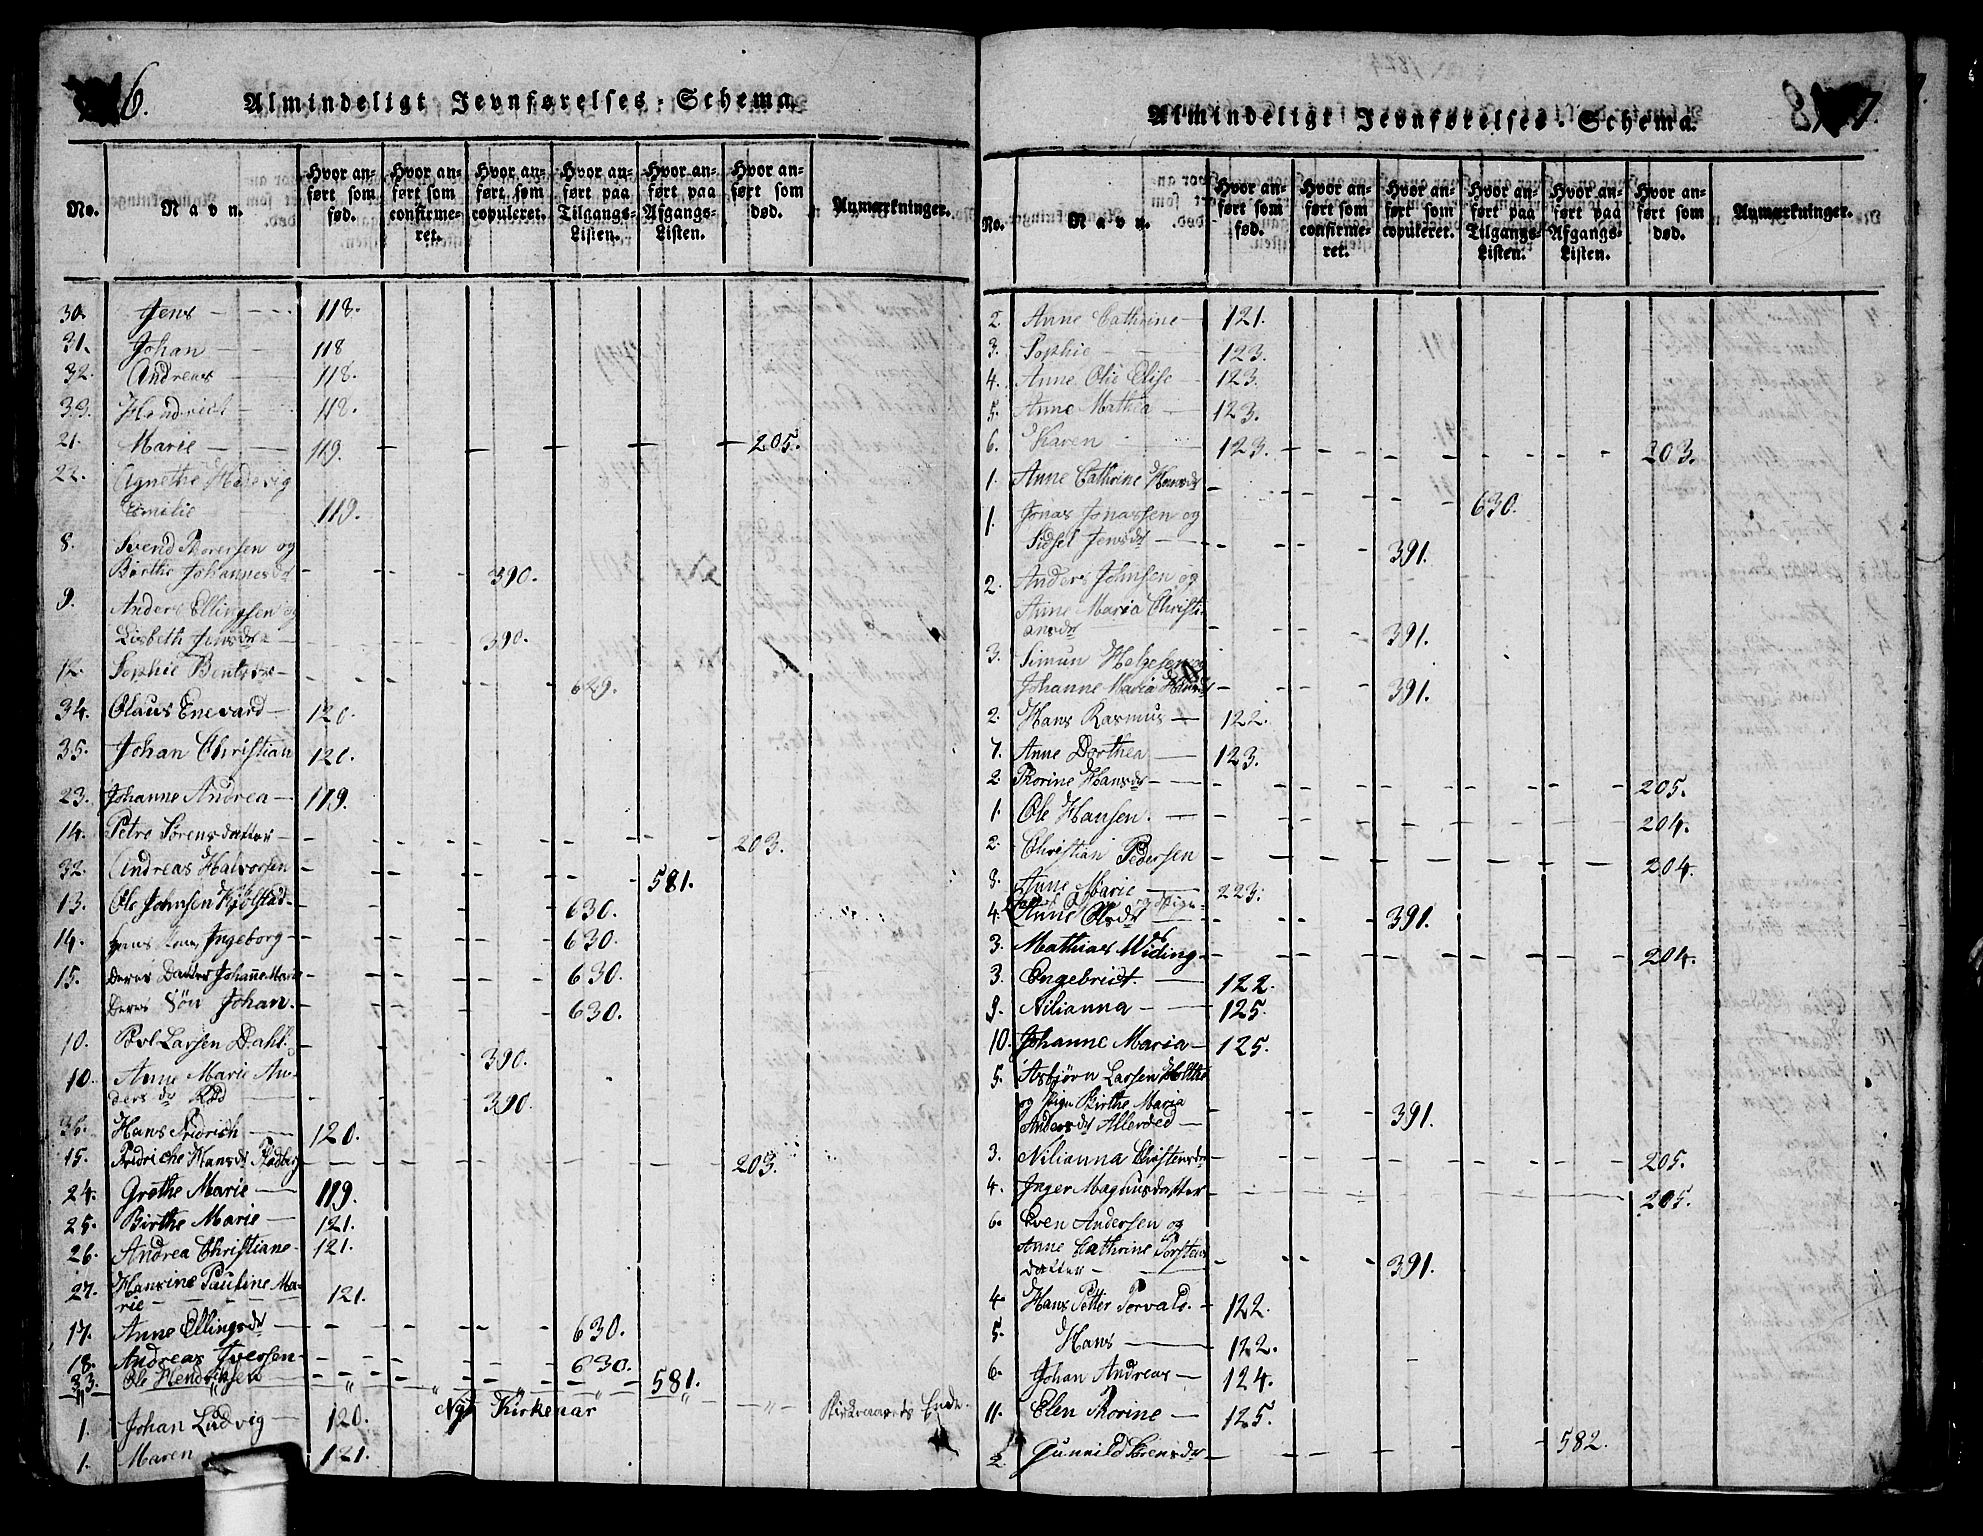 6.
Almindeligt Jevnførelses-Schema.
No.
Navn.
Hvor anført som fød.
Hvor anført som confirmeret.
Hvor anført som copuleret.
Hvor anført paa Tilgangs-Listen.
Hvor anført paa Afgangs-Listen.
Hvor anført som død.
Anmærkninger.
30. Jens 118.
31. Johan 118
32. Andreas 118.
33. Hendrich 118.
21. Marie 119. 205.
22. Agnethe Hedevig
Emilie 119.
8. Svend Thoresen og
Birthe Johannesdr 390.
9. Anders Ellingsen og
Lisbeth Jensdr 390.
12. Sophie Bentsdr 629.
34. Olaus Enevard 120.
35. Johan Christian 120.
23. Johanne Andrea 119.
14. Petre Sørensdatter 203.
32. Andreas Halvorsen 581.
13. Ole Johnsen Kjølstad 630.
14. hans Kone Ingeborg 630.
15. Deres Datter Johanne Marie 630.
Deres Søn Johan. 630.
10. Poul Larsen Dahl 390.
10. Anne Marie An-
dersdr Rød 390.
36. Hans Fridrich 120.
15. Fridriche Hansdr Rødberg 203.
24. Grethe Marie 119.
25. Birthe Marie 121.
26. Andrea Christiane 121.
27. Hansine Pauline Ma-
rie 121.
17. Anne Ellingsdr 630.
18. Andreas Iversen 630.
33. Ole Hendrichsen 581.
Nyt Kirkeaar Kirkeaarets Ende.
1. Johan Ludvig 120.
1. Maren 121.
7.
Almindeligt Jevnførelses-Schema.
No.
Navn.
Hvor anført som fød.
Hvor anført som confirmeret.
Hvor anført som copuleret.
Hvor anført paa Tilgangs-Listen.
Hvor anført paa Afgangs-Listen.
Hvor anført som død.
Anmærkninger.
2. Anne Cathrine 121.
3. Sophie 123.
4. Anne Olie Elise 123.
5. Anne Mathea 123.
6. Karen 123. 203.
1. Anne Cathrine Hansdr 630.
1. Jonas Jonassen og
Sidsel Jensdr 391.
2. Anders Johnsen og
Anne Maria Christi-
ansdr 391.
3. Simun Helgesen og
Johanne Maria Hansdr 391.
2. Hans Rasmus 122.
7. Anne Dorthea 123.
2. Thorine Hansdr 205.
1. Ole Hansen. 204.
2. Christian Pedersen 204.
8. Anne Marie 223.
4. Anne Olsdr 391.
3. Mathias Widing 204.
3. Engebrict. 122.
9. Nilianna 125.
10. Johanne Maria 125.
5. Asbjørn Larsen Holthe
og Pige Birthe Maria
Andersdr Allerød 391.
3. Nilianna Christensdr 205.
4. Inger Magnusdatter 205.
6. Even Andersen og
Anne Cathrine Torstens
datter 391.
4. Hans Petter Torvald. 122.
5. Hans 122.
6. Johan Andreas 124.
11. Elen Thorine 125.
2. Gunnild Sørensdr 582.